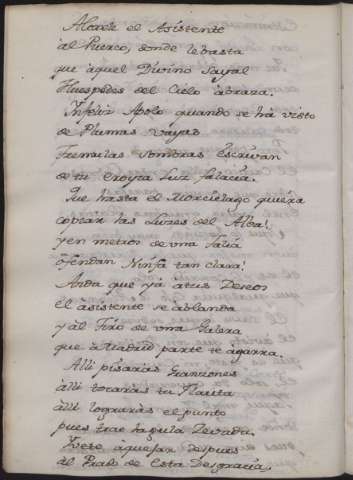 Alcese el Asistente
al Puerco, donde le basta
que àquel Divino Sayal
Huespedes del Cielo abraza.
Infeliz Apolo quando se hà visto
de Plumas
Tremulas Sombras escrivan
de tu Luz
Que hasta el Morcielago quiera
copiar las Luzes del Alba!
y en metros de una
ofendan Ninfa tan clara!
Anda que yà à tus Deseos
el àsistente se ablanda
y àl Frio de una Galera
que à Madrid parte te agarra.
Alli pisaràs Granzones
alli tocaràs tu Flauta
alli lograràs el punto
pues trae la Nevada.
Vete à quejar despues
àl Prado de Esta Desgracia,